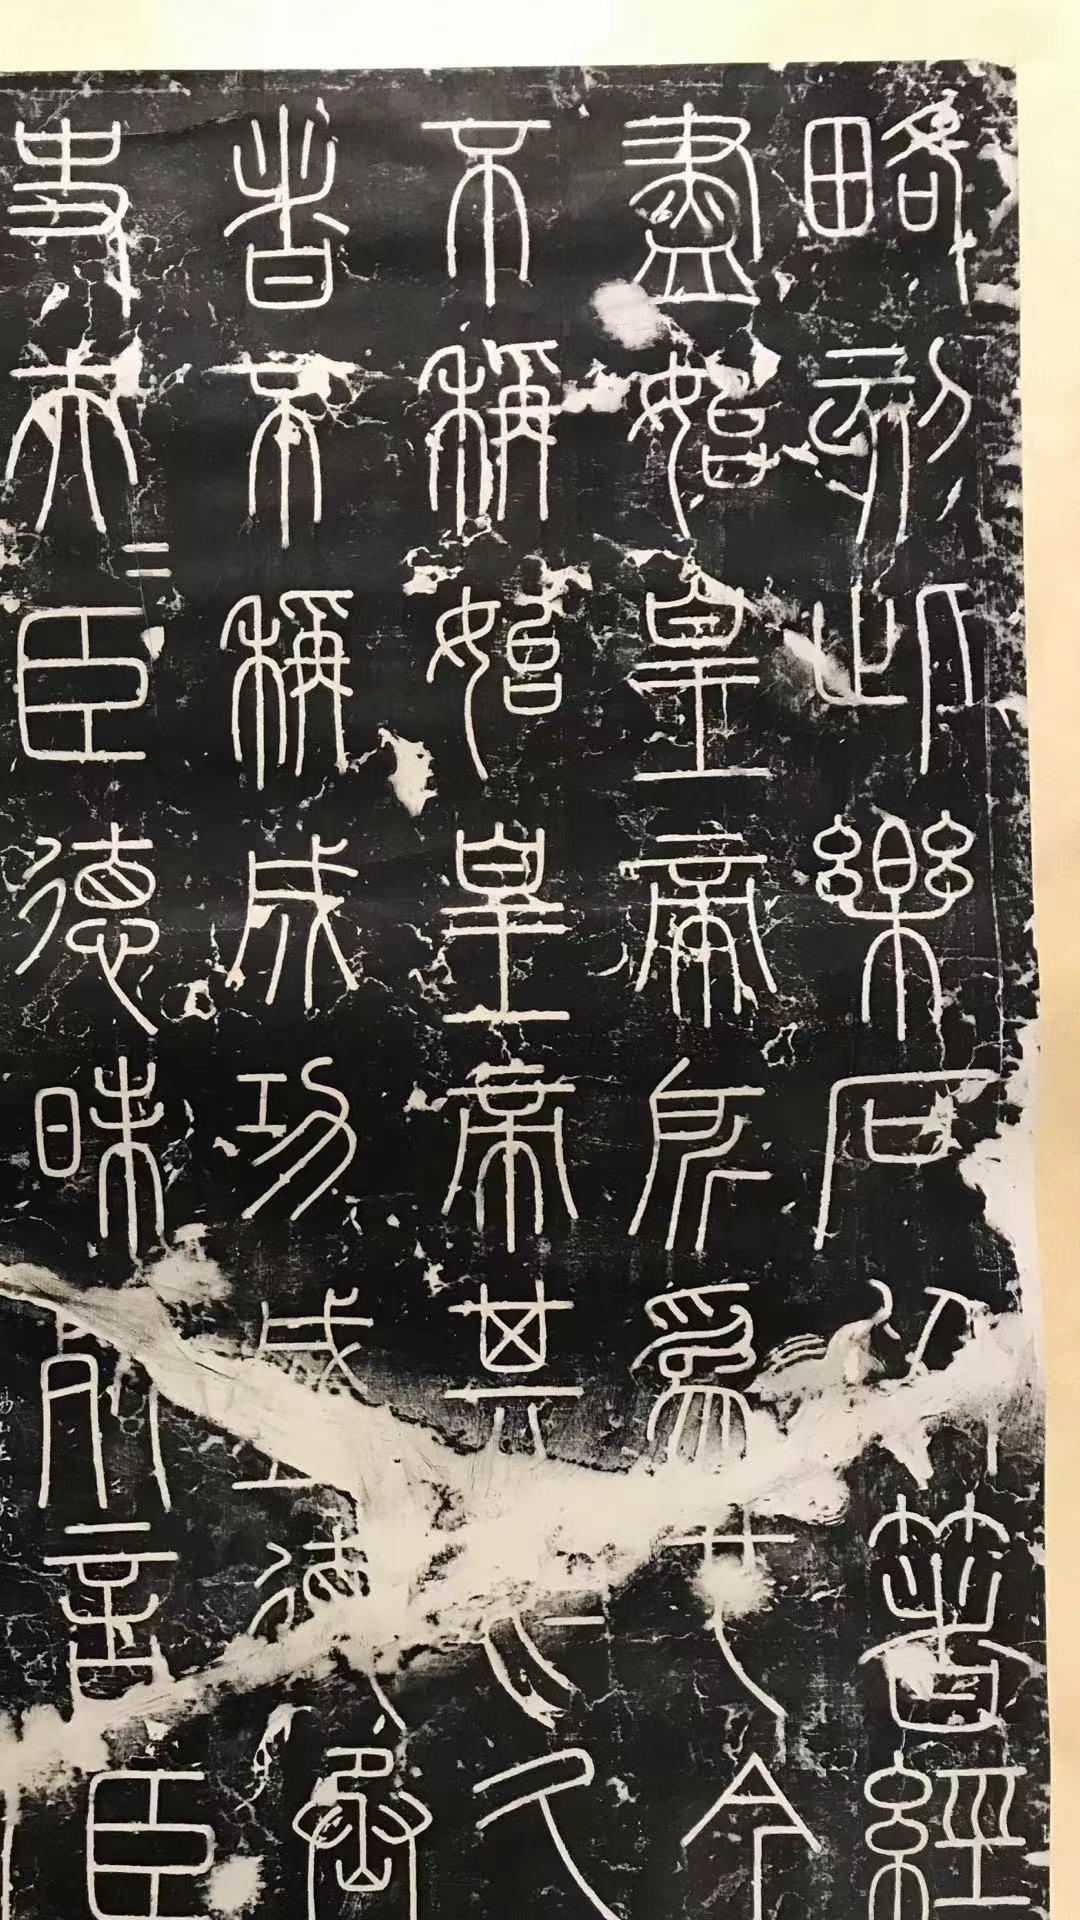 略刻此樂石以著經
盡始皇帝所為也今
不稱始皇帝其於久
者不稱成功盛德丞
史夫=臣德昧死言臣